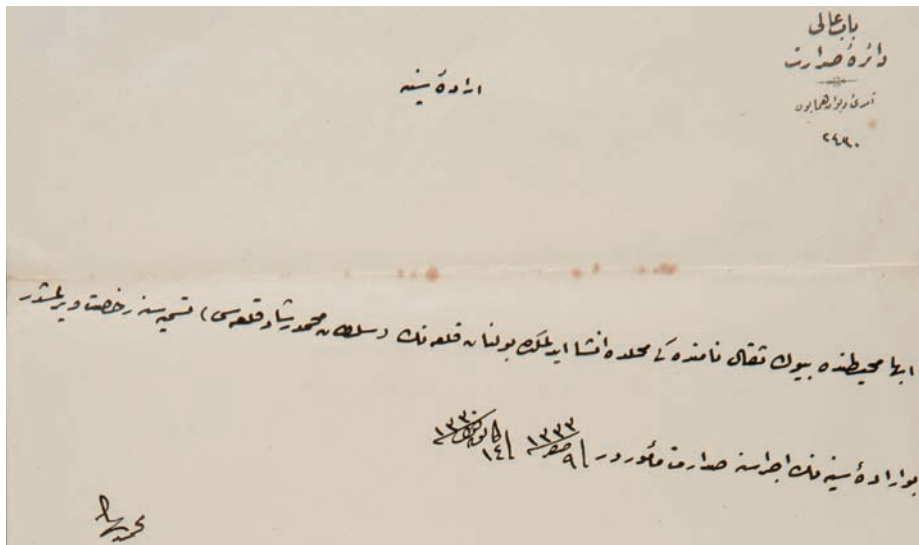 باب عالی
دائرۀ صدارت
آمدئ دیوان همایون
٢٤٣٠
ارادۀ سنیه
ابها محیطنده بیوك ثقال نامنده کی محلده انشا ایدلمكده بولنان قلعه نك (سلطان محمد رشاد قلعه سی) تسمیه سنه رخصت ویرلمشدر
بو ارادۀ سنیه نك اجراسنه صدارت مأموردر
٩ صفر ١٣٣٣
١٤ كانون اول ١٣٣٠
محمد رشاد